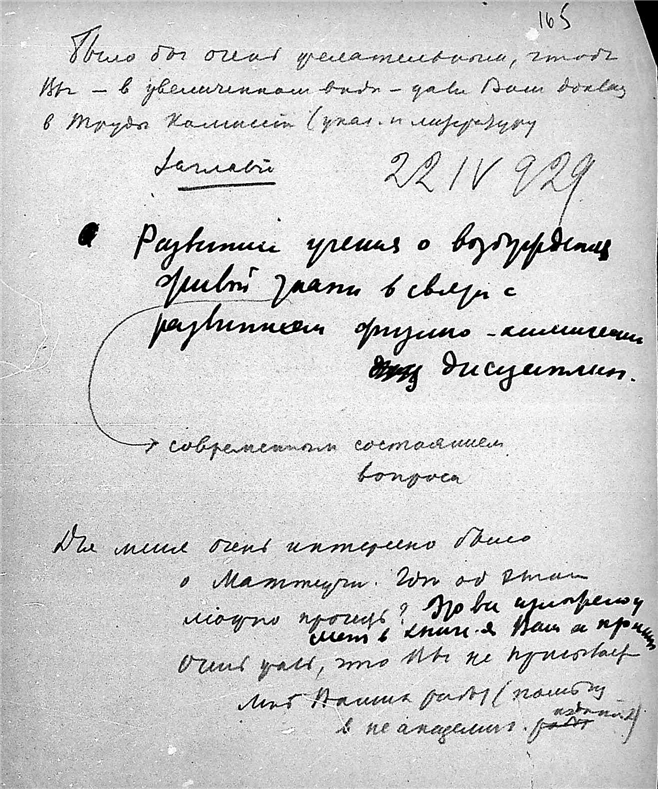 165
Было бы очень желательным, чтобы
Вы – в увеличенном виде – дали Ваш доклад
в Труды Комиссии (указ. и литературу
Заглавие
22 IV 929.
Развитие учения о возбуждении
живой ткани в связи с
развитием физико-химических
дисциплин.
современным состоянием
вопроса
Для меня очень интересно было
о Маттеучи. Где об этом
можно прочесть?
в книг
Очень жаль, что Вы не присылаете
мне Ваших работ (
в не академич. изданиях)